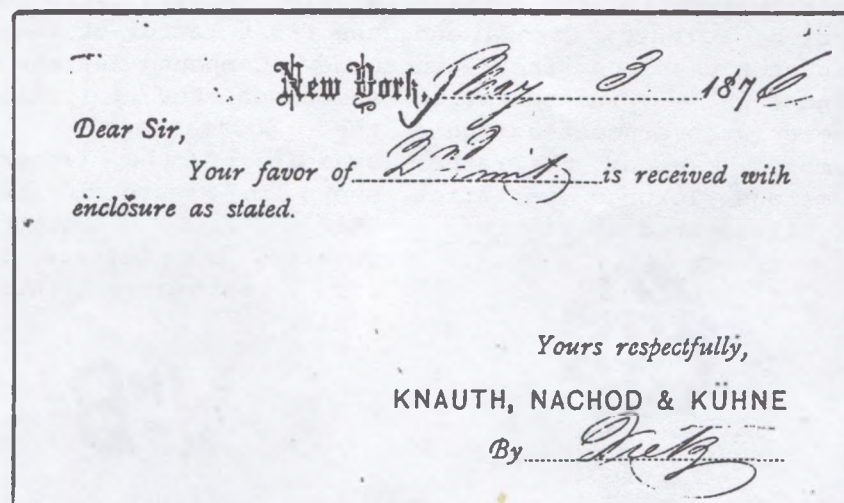 New York, May 3 1876
Dear Sir,
Your favor of 2nd inst. is received with
enclosure as stated.
Yours respectfully,
KNAUTH, NACHOD & KÜHNE
By